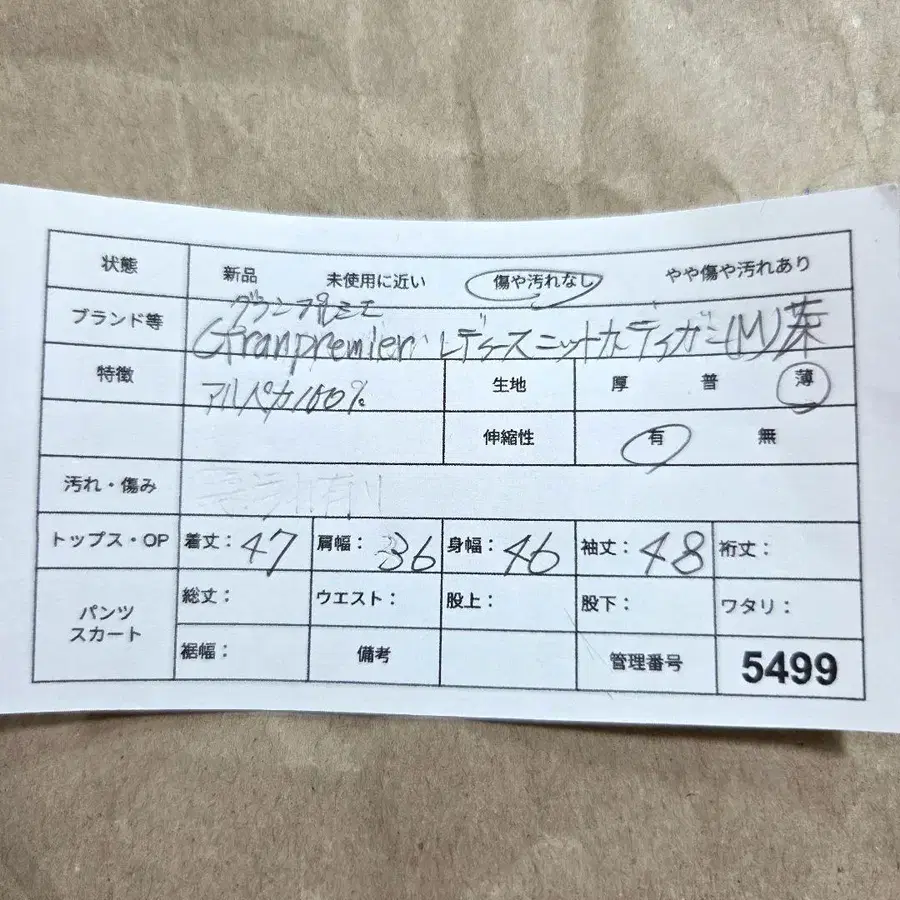 状態 新品 未使用に近い 傷や汚れなし やや傷や汚れあり
グランプルミエ
ブランド等 Granpremier レディースニットカーディガン(M)茶
特徴 アルパカ100% 生地 厚 普 薄
伸縮性 有 無
汚れ・傷み
トップス・OP 着丈：47 肩幅：36 身幅：46 袖丈：48 裄丈：
パンツ 総丈： ウエスト： 股上： 股下： ワタリ：
スカート
裾幅： 備考 管理番号 5499